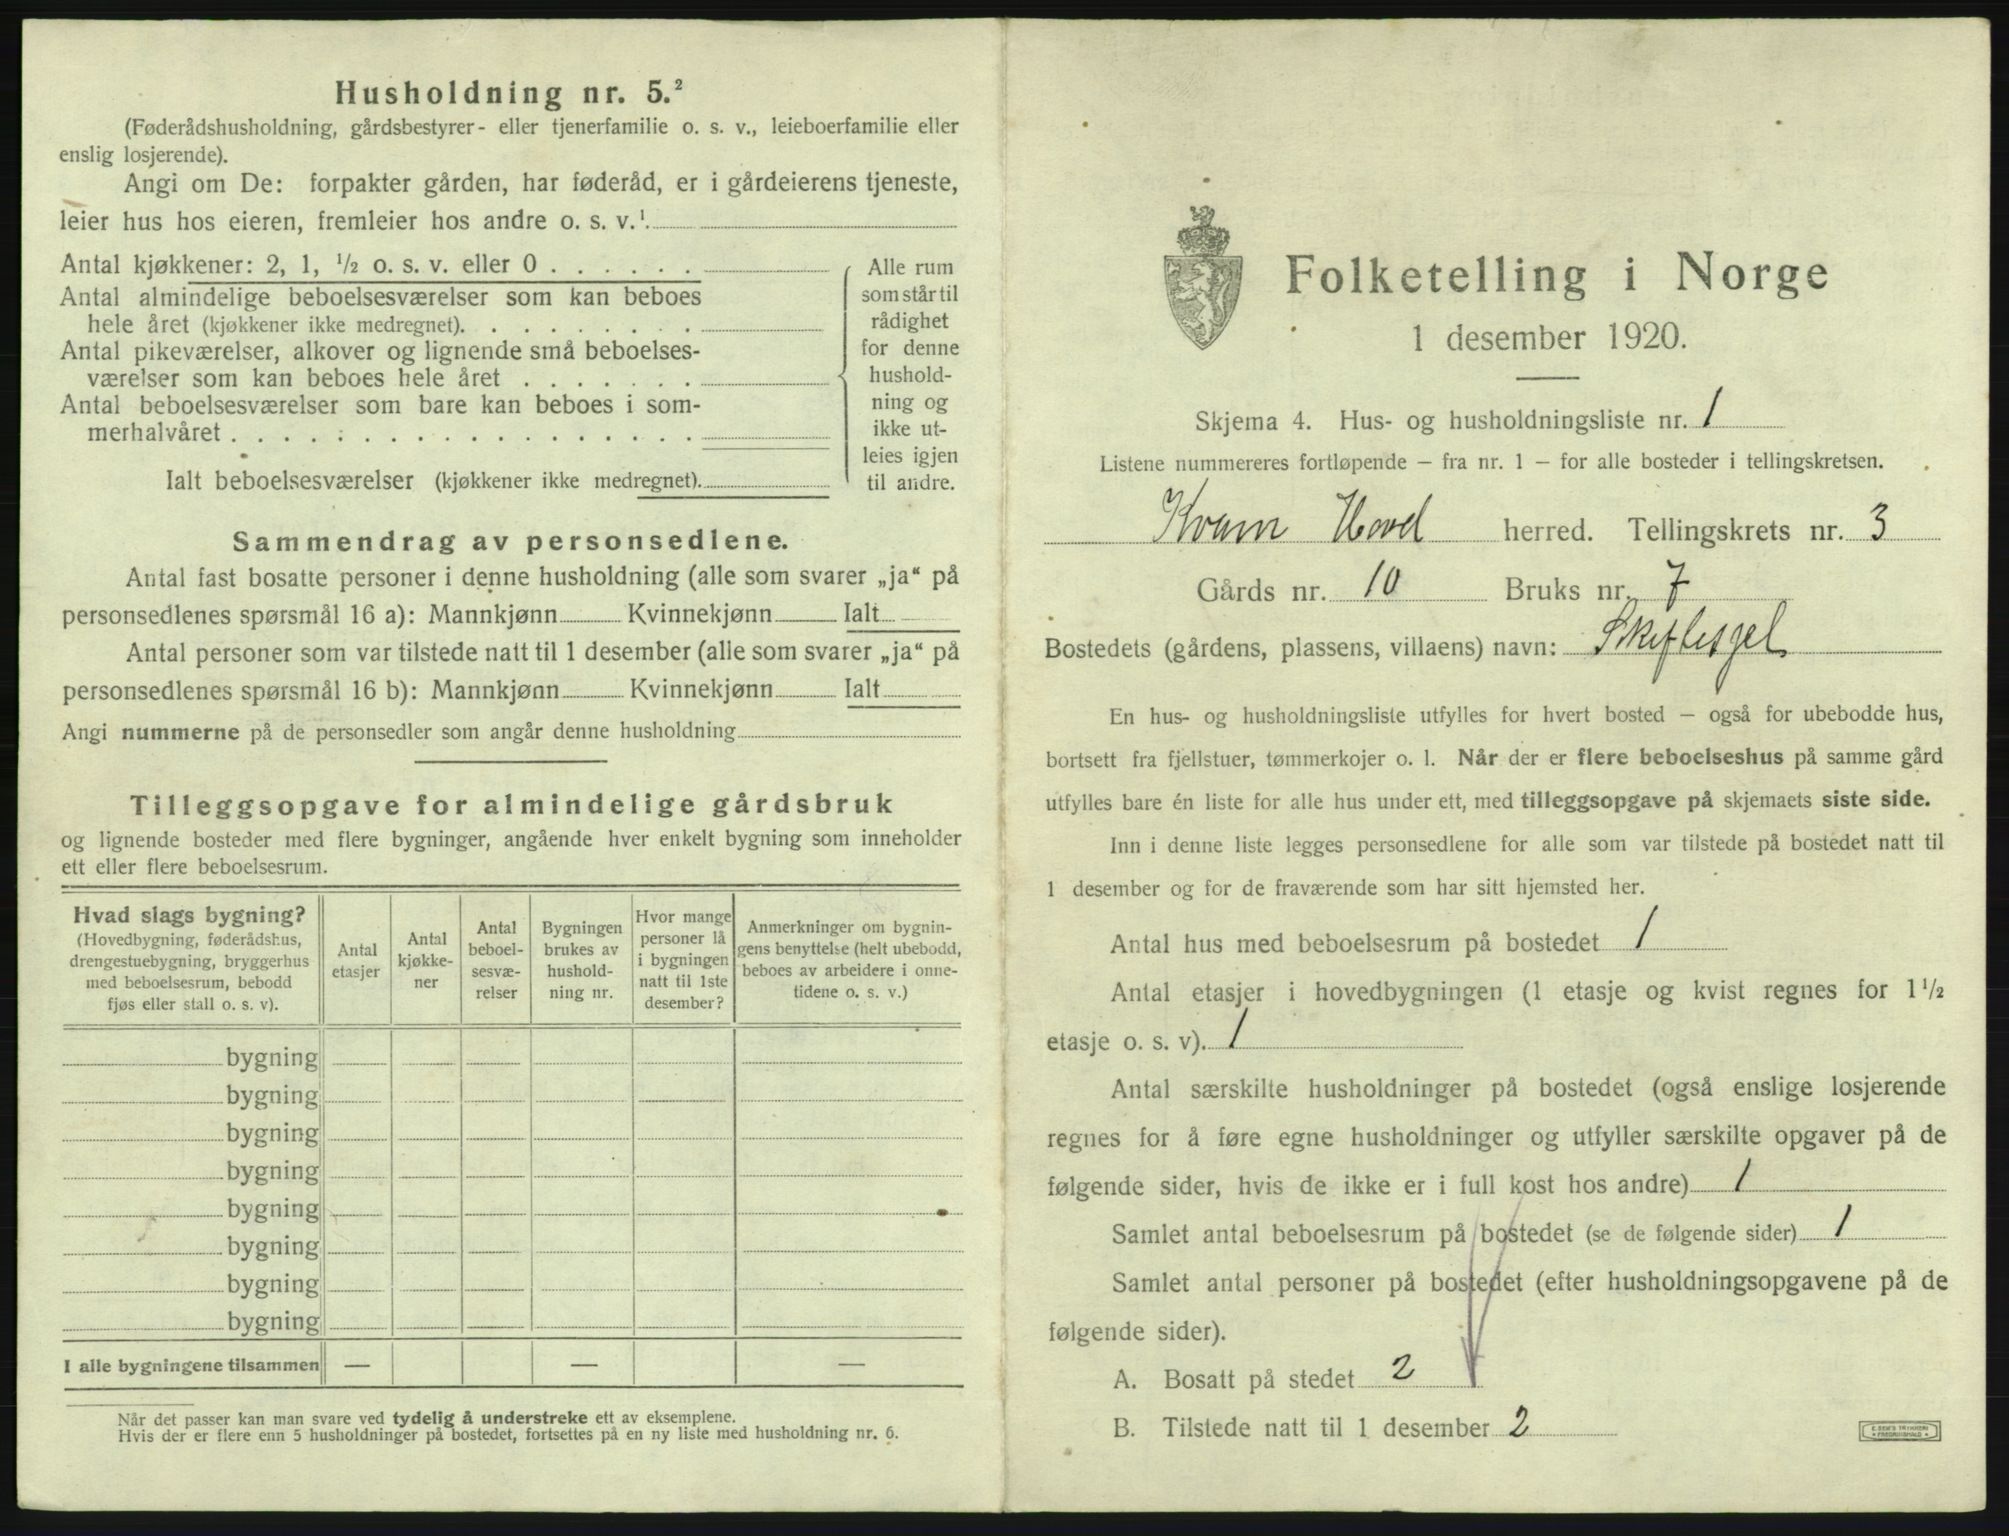 Husholdning nr. 5.²
(Føderådshusholdning, gårdsbestyrer- eller tjenerfamilie o. s. v., leieboerfamilie eller
enslig losjerende).
Angi om De: forpakter gården, har føderåd, er i gårdeierens tjeneste,
leier hus hos eieren, fremleier hos andre o. s. v.¹
Antal kjøkkener: 2, 1, ½ o. s. v. eller 0 . . . . . .
Antal almindelige beboelsesværelser som kan beboes
hele året (kjøkkener ikke medregnet). . . . . . . . .
Antal pikeværelser, alkover og lignende små beboelses-
værelser som kan beboes hele året . . . . . . .
Antal beboelsesværelser som bare kan beboes i som-
merhalvåret . . . . . . . . . . . . . . . . . .
Ialt beboelsesværelser (kjøkkener ikke medregnet).
Alle rum
som står til
rådighet
for denne
hushold-
ning og
ikke ut-
leies igjen
til andre.
Sammendrag av personsedlene.
Antal fast bosatte personer i denne husholdning (alle som svarer „ja“ på
personsedlenes spørsmål 16 a): Mannkjønn Kvinnekjønn Ialt
Antal personer som var tilstede natt til 1 desember (alle som svarer „ja“ på
personsedlenes spørsmål 16 b): Mannkjønn Kvinnekjønn Ialt
Angi nummerne på de personsedler som angår denne husholdning
Tilleggsopgave for almindelige gårdsbruk
og lignende bosteder med flere bygninger, angående hver enkelt bygning som inneholder
ett eller flere beboelsesrum.
Hvad slags bygning?
(Hovedbygning, føderådshus,
drengestuebygning, bryggerhus
med beboelsesrum, bebodd
fjøs eller stall o. s. v).
Antal
etasjer
Antal
kjøkke-
ner
Antal
beboel-
sesvæ-
relser
Bygningen
brukes av
hushold-
ning nr.
Hvor mange
personer lå
i bygningen
natt til 1ste
desember?
Anmerkninger om bygnin-
gens benyttelse (helt ubebodd,
beboes av arbeidere i onne-
tidene o. s. v.)
bygning
bygning
bygning
bygning
bygning
bygning
bygning
bygning
I alle bygningene tilsammen — — —
Når det passer kan man svare ved tydelig å understreke ett av eksemplene.
Hvis der er flere enn 5 husholdninger på bostedet, fortsettes på en ny liste med husholdning nr. 6.
Folketelling i Norge
1 desember 1920.
Skjema 4. Hus- og husholdningsliste nr. 1
Listene nummereres fortløpende – fra nr. 1 – for alle bosteder i tellingskretsen.
Kvam Hovd herred. Tellingskrets nr. 3
Gårds nr. 10 Bruks nr. 7
Bostedets (gårdens, plassens, villaens) navn: Skiftesgel
En hus- og husholdningsliste utfylles for hvert bosted – også for ubebodde hus,
bortsett fra fjellstuer, tømmerkojer o. l. Når der er flere beboelseshus på samme gård
utfylles bare én liste for alle hus under ett, med tilleggsopgave på skjemaets siste side.
Inn i denne liste legges personsedlene for alle som var tilstede på bostedet natt til
1 desember og for de fraværende som har sitt hjemsted her.
Antal hus med beboelsesrum på bostedet 1
Antal etasjer i hovedbygningen (1 etasje og kvist regnes for 1½
etasje o. s. v). 1
Antal særskilte husholdninger på bostedet (også enslige losjerende
regnes for å føre egne husholdninger og utfyller særskilte opgaver på de
følgende sider, hvis de ikke er i full kost hos andre) 1
Samlet antal beboelsesrum på bostedet (se de følgende sider) 1
Samlet antal personer på bostedet (efter husholdningsopgavene på de
følgende sider).
A. Bosatt på stedet 2
B. Tilstede natt til 1 desember 2